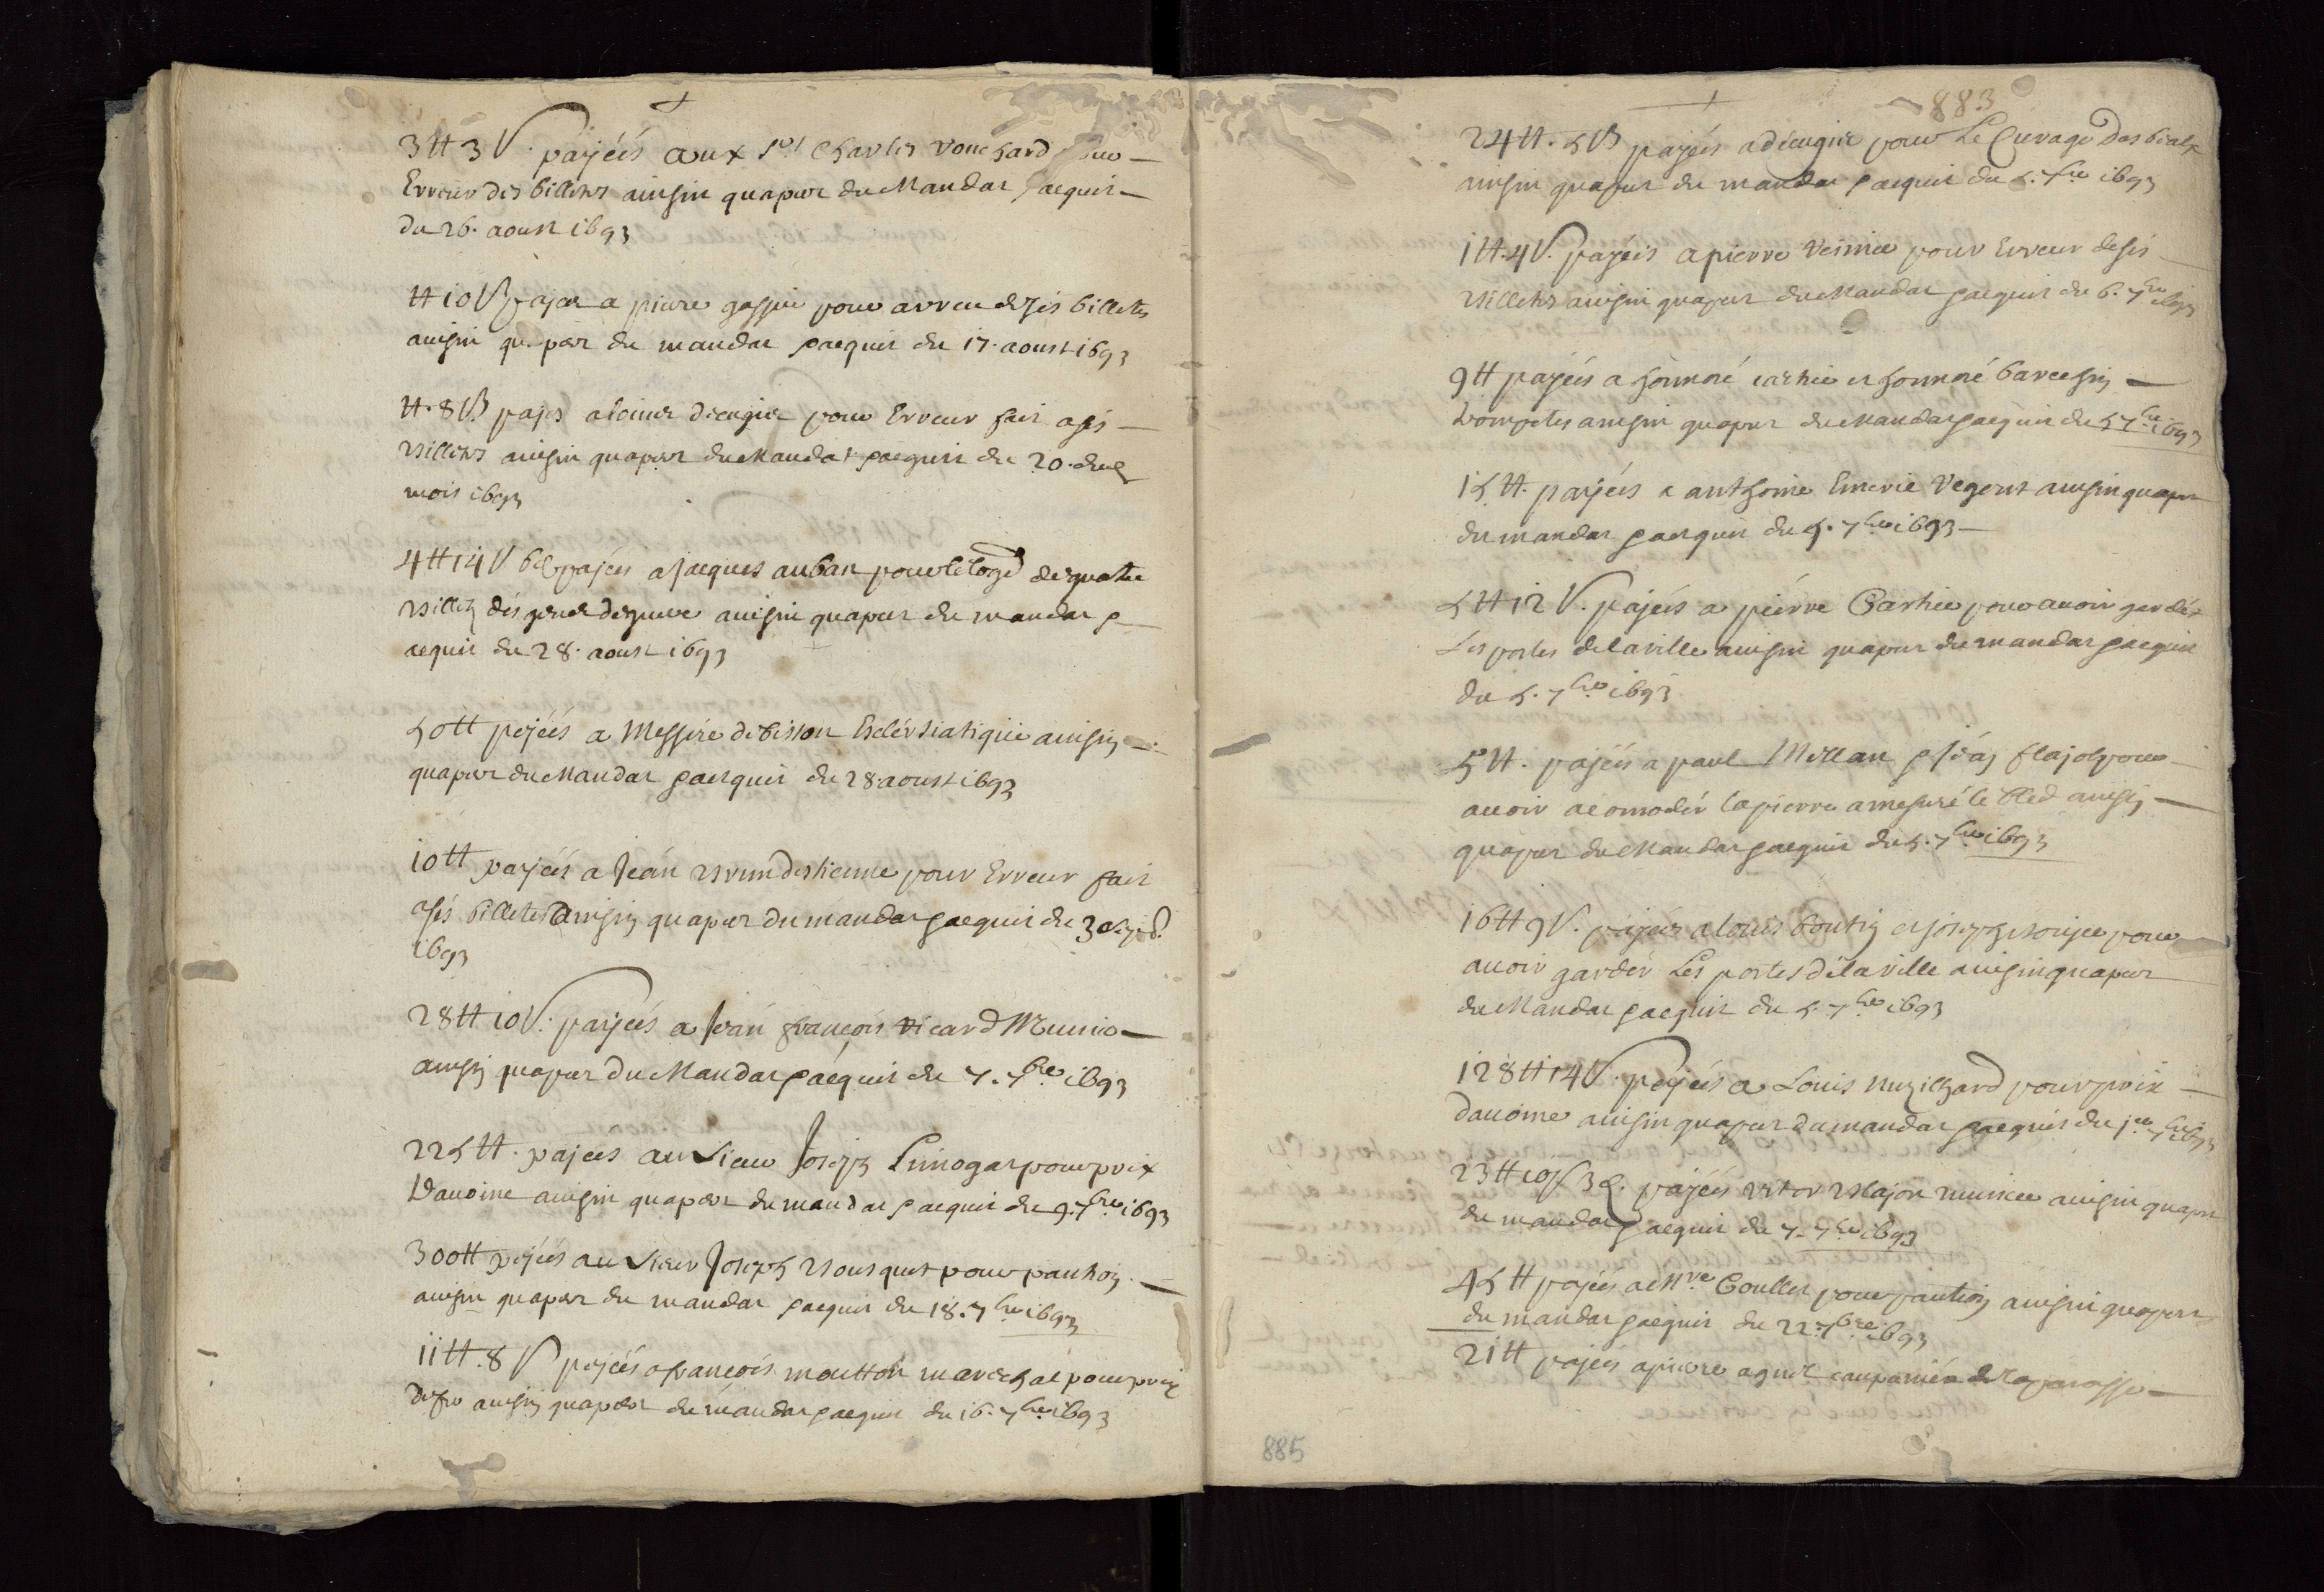 3 tt 3 s payéés aux srs Charles vouchard pour
Erreur des billetes ainsin quapar du Mandat & acquit
du 26. aoust 1693
tt 10 s payes a pierre gassin pour arreur de ses billettes
ainsin quapar du mandat & acquit du 17. aoust 1693
tt. 8 s payes a loius deeugie pour Erreur fait a ses
billetes ainsin quapar du Mandat & acquit du 20. dud
mois 1693
4 tt 14 s 6 d payées a Jacques auban pour le logé de quatre
billets des gens de guerre ainsin quapar du mandat &
acquit du 28. aoust 1693
50 tt peyéés a Messire de bisson Eclésiatique ainsin
quapar du Mandat & acquit du 28 aoust 1693
10 tt payéés a Jean brun destienne pour Erreur fait
a ses billetes ainsin quapar du mandat & acquit du 30
1693
28 tt 10 s. payéés a Jean françois Ricard Munie
ainsin quapar du Mandat & acquit du 7. 7bre 1693
225 tt. payées au sieur Joseph Limogat pour prix
Davoine ainsin quapar du mandat & acquit du 9. 7bre 1693
300 tt peyéés au sieur Joseph bousquet pour panthon
ainsin quapar du mandat & acquit du 18. 7bre 1693
11 tt. 8 s peyéés a françois moutton marechal pour prix
de fer ainsin quapar du mandat & acquit du 16. 7bre 1693
883
24 tt. 5 s payées a deeugie pour Le Curage des bealx
ainsin quapar du mandat & acquit du 5. 7bre 1693
1 tt. 4 s. payéés a pierre Veirrier pour Erreur de ses
billetes ainsin quapar du Mandat & acquit du 6. 7bre 1693
9 tt payéés a honnoré carthier et honnoré barcesin
trompetes ainsin quapar du Mandat & acquit du 5 7bre 1693
15 tt. payées a anthoine Emeric Regent ainsin quapar
du mandat & acquit du 5. 7bre 1693
5 tt 12 s. payéés a pierre Carthier pour avoir gardés
Les portes de la ville ainsin quapar du mandat & acquit
du 5. 7bre 1693
5 tt. payéés a paul Millan & Jean flajol pour
avoir acomodér la pierre a mesuré le bled ainsin
quapar du Mandat & acquit du 5. 7bre 1693
16 tt 9 s. payéés a louis boutin et joseph pour
avoir gardér Les portes de la ville ainsin quapar
du Mandat & acquit du 5. 7bre 1693
128 tt 14 s. peyéés a Louis pour prix
davoine ainsin quapar du mandat & acquit du 1er 7bre 1693
23 tt 10 s 3 d. payéés Victor Major munier ainsin quapar
du mandat & acquit du 7. 7bre 1693
45 tt payéés a Mre Goullet pour ainsin quapar
du mandat & acquit du 22. 7bre 1693
21 tt payéés a pierre agnel campanier de la paroisse
885